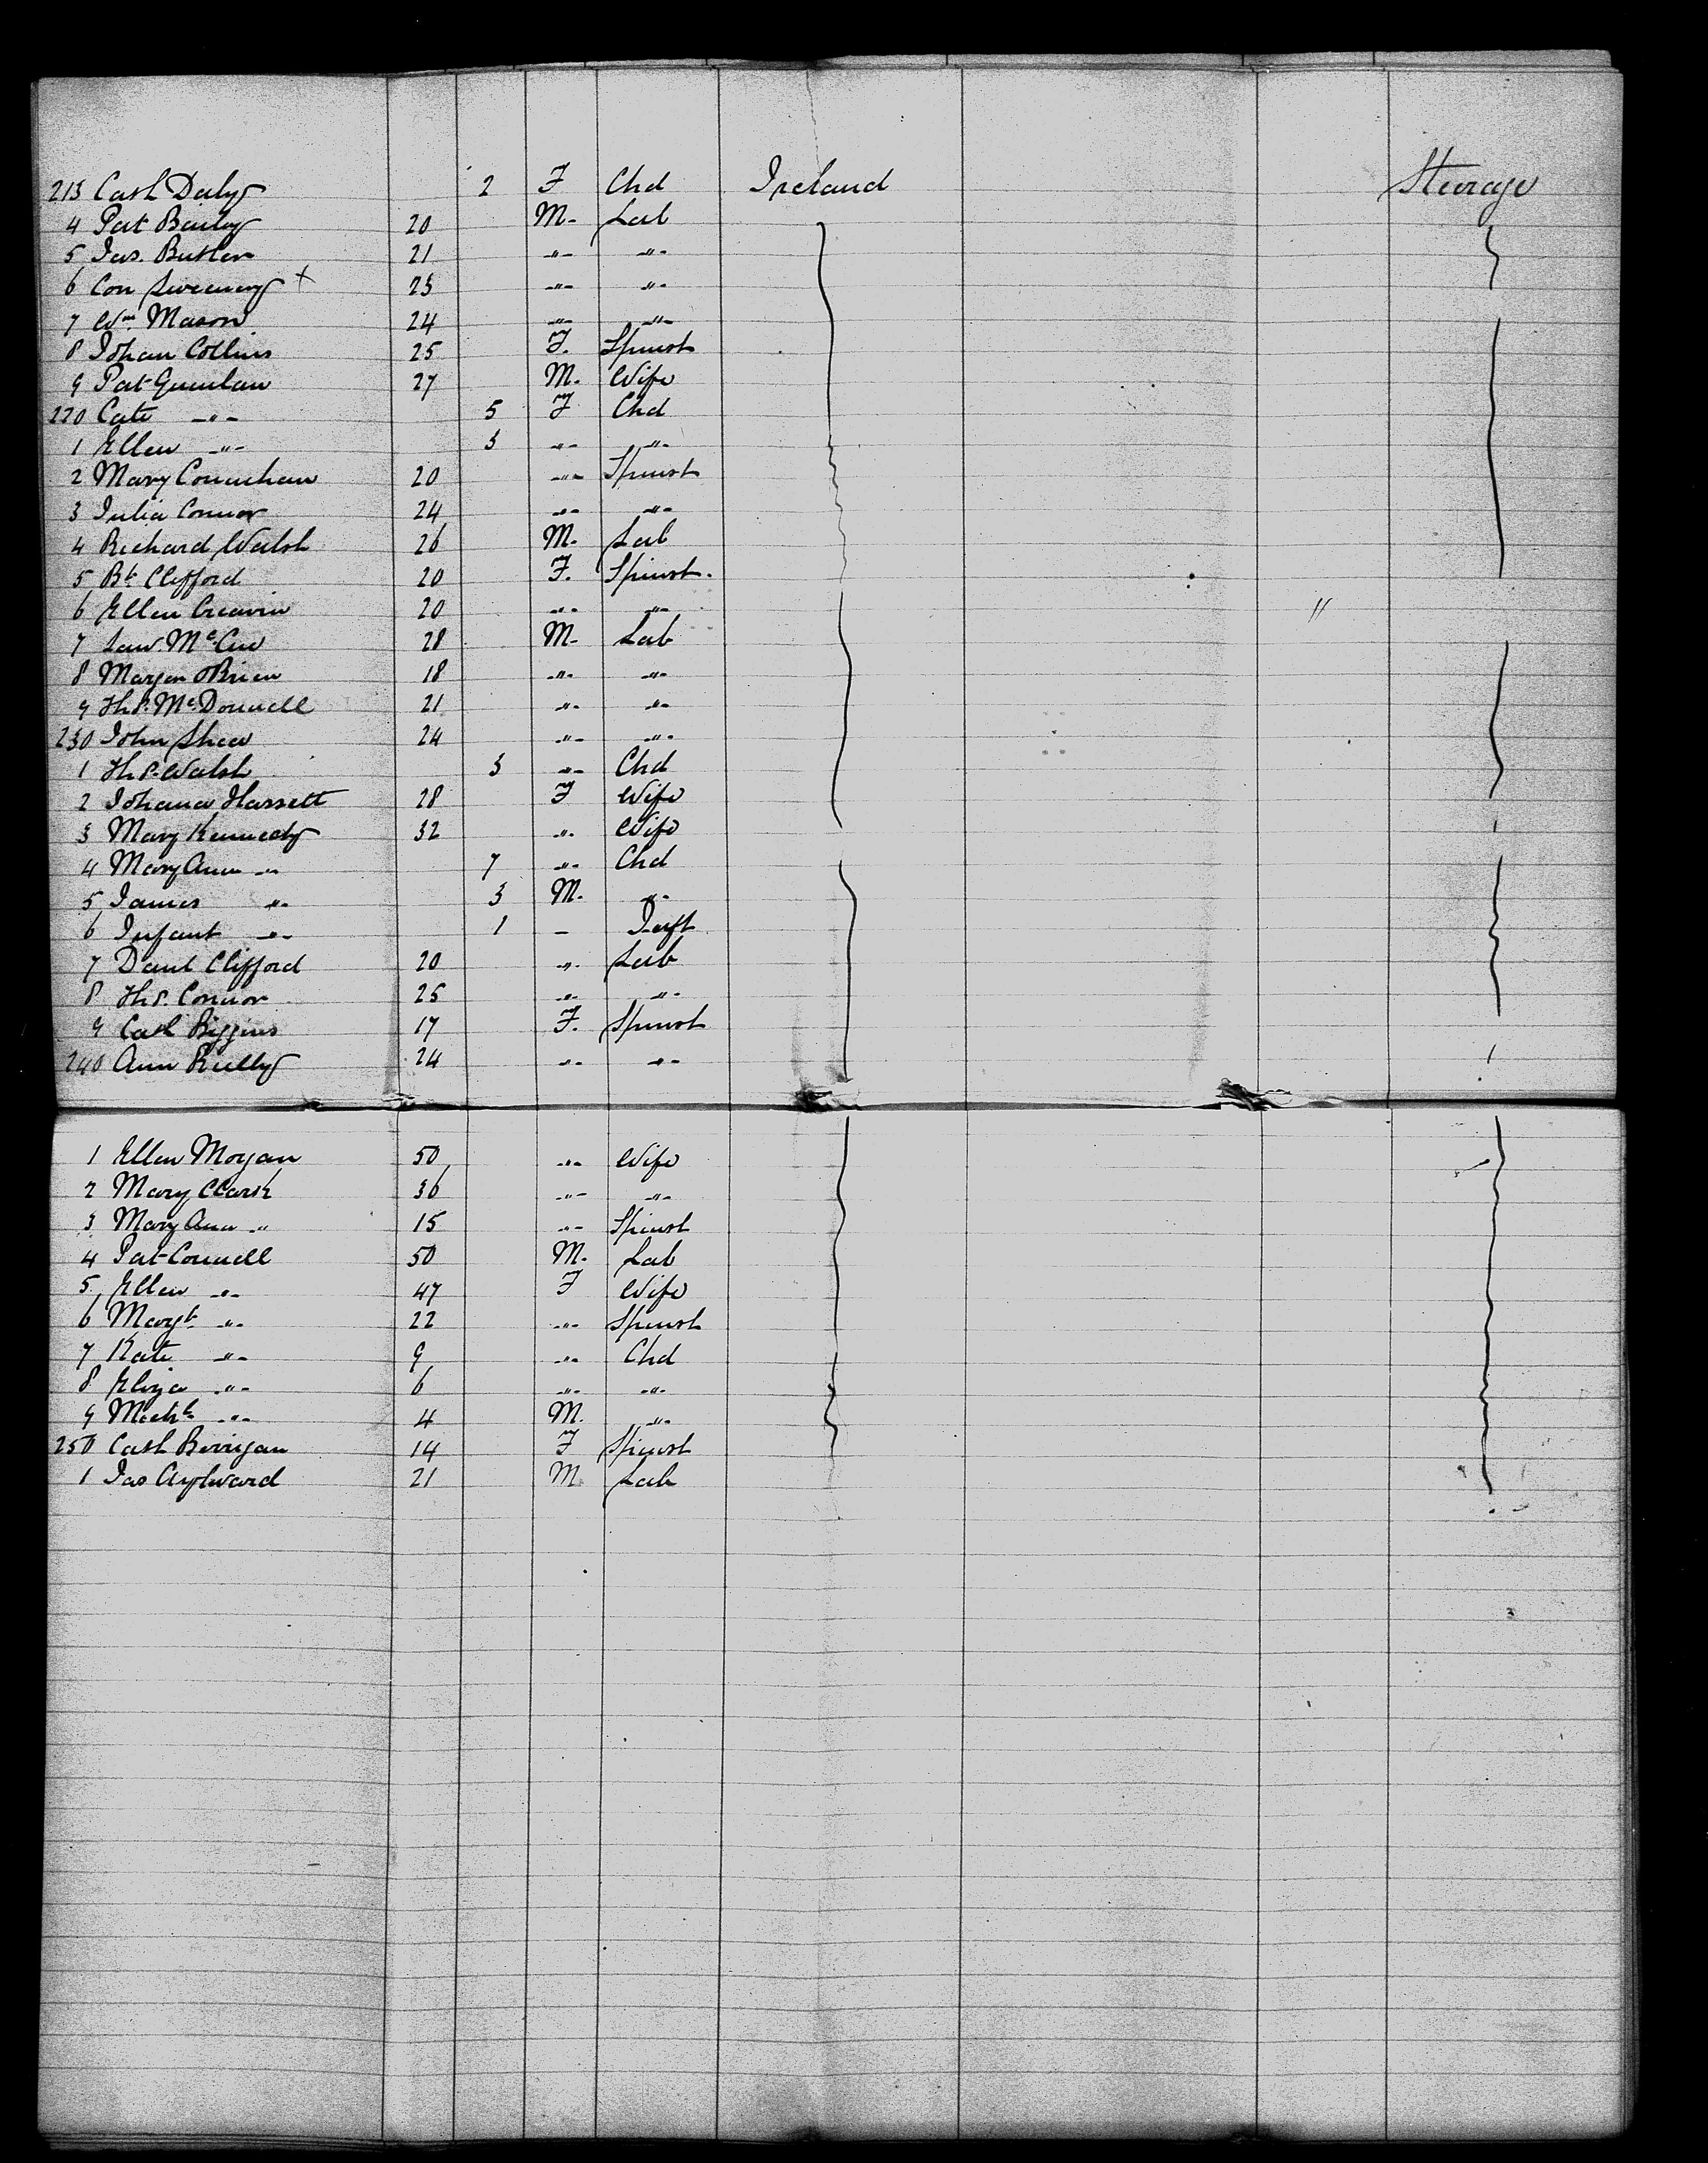 213 Cath Daly 2 F Chd Ireland Steerage
4 Pat Bailey 20 M. Lab
5 Jas. Butler 21 -"- -"-
6 Con Sweeney + 23 -"- -"-
7 Wm. Mason 24 -"- -"-
8 Johan Collins 25 F. Spinst
9 Pat Quinlan 27 M. Wife
220 Cate -"- 5 F Chd
1 Ellen -"- 3 -"- -"-
2 Mary Counihan 20 -"- Spinst
3 Julia Connor 24 -"- -"-
4 Richard Walsh 26 M. Lab
5 Bt. Clifford 20 F. Spinst.
6 Ellen Creavin 20 -"- -"- "
7 Law. Mc 28 M- Lab
8 OBrien 18 -"- -"-
9 Ths. McDonnell 21 -"- -"-
230 John Shea 24 -"- -"-
1 Ths. Walsh 3 -"- Chd
2 Johana Hassett 28 F Wife
3 Mary Kennedy 32 -"- Wife
4 Mary Ann -"- 7 -"- Chd
5 James -"- 3 M. -"-
6 Infant -"- 1 - Inft
7 Danl Clifford 20 -"- Lab
8 Ths. Connor 25 -"- -"-
9 Cath Biggins 17 F. Spinst
240 Ann Reilly 24 -"- -"-
1 Ellen Morgan 50 -"- Wife
2 Mary Clark 36 -"- -"-
3 Mary Ann -"- 15 -"- Spinst
4 Pat Connell 50 M. Lab
5 Ellen -"- 47 F Wife
6 Margt. -"- 22 -"- Spinst
7 Kate -"- 9 -"- Chd
8 Eliza -"- 6 -"- -"-
9 Michl. -"- 4 M. -"-
250 Cath Berrigan 14 F Spinst
1 Jas Aylward 21 M. Lab